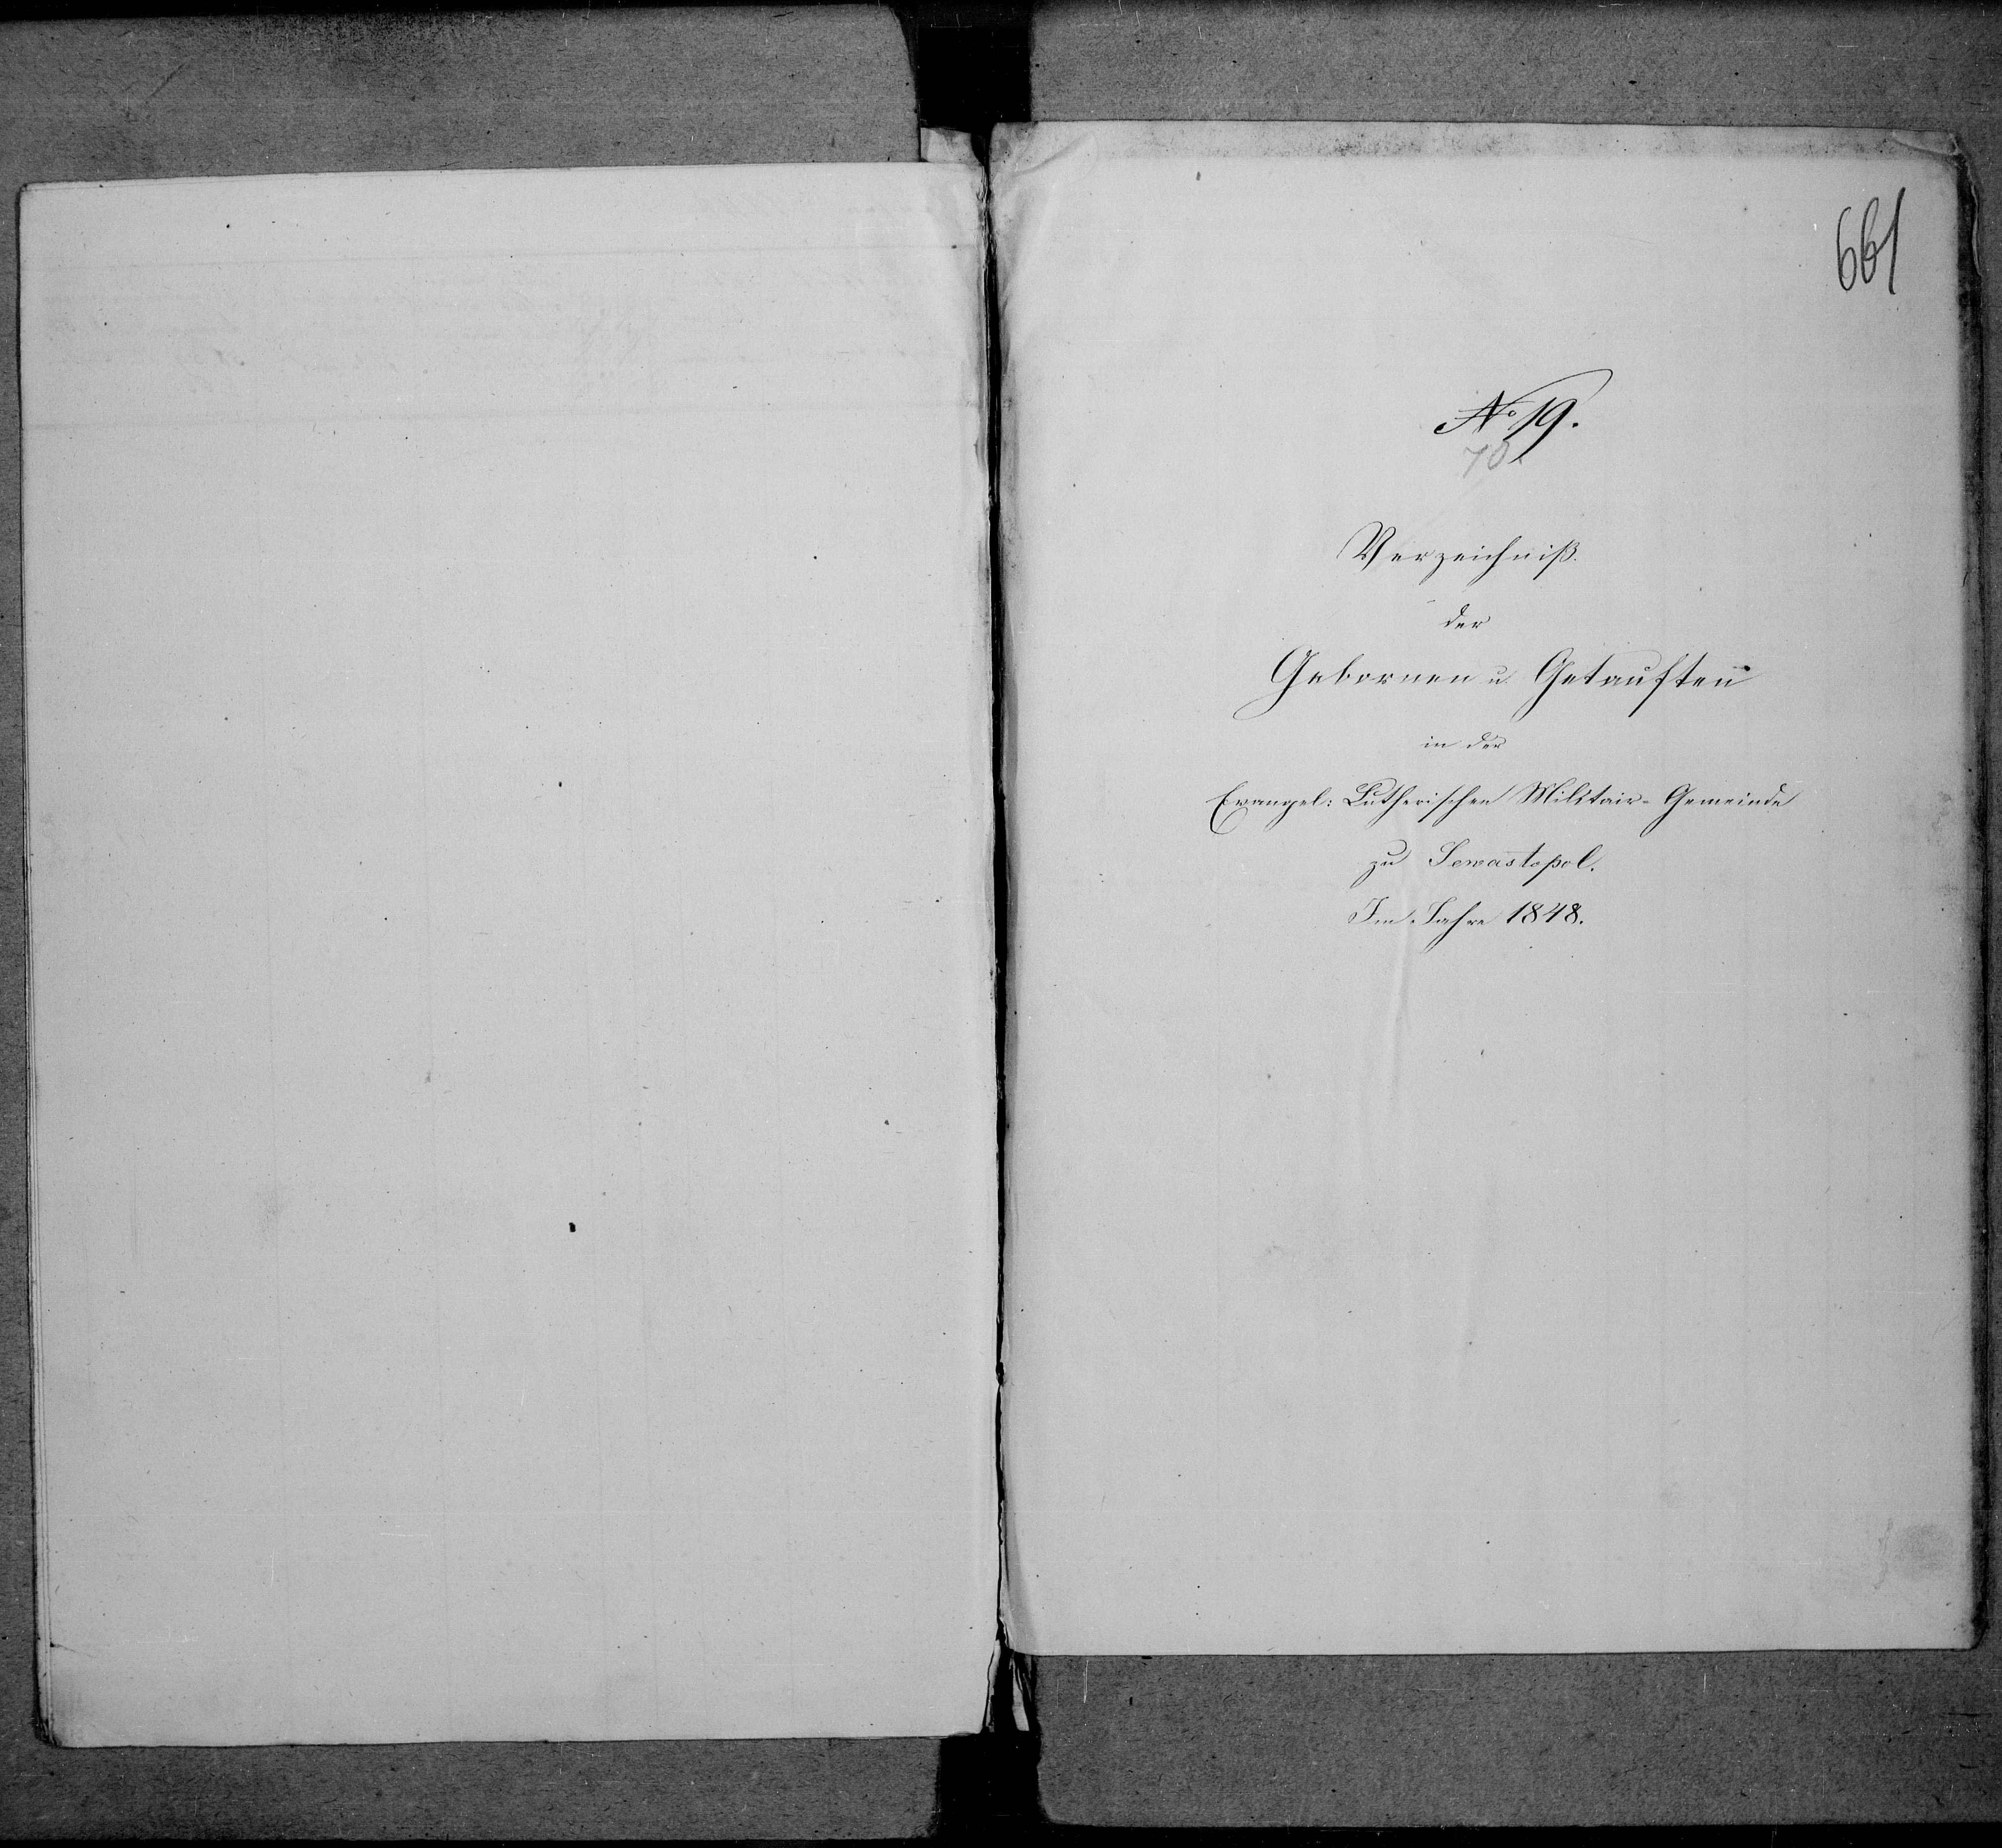 661
No 19.
70.
Verzeichniß
der
Gebornen u. Getauften
in der
Evangel: Lutherischen Militair-Gemeinde
zu Sewastopol.
Im Jahre 1848.